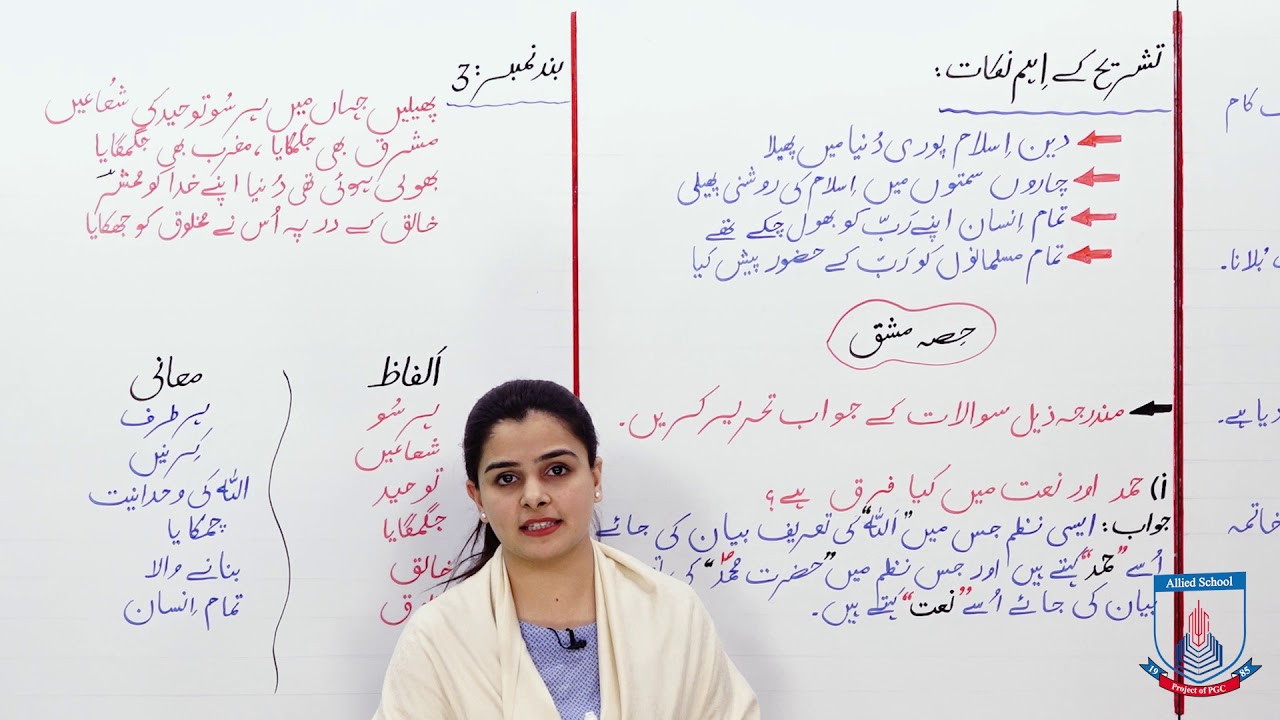 کام
بُلانا۔
دیا ہے۔
خاتمہ
تشریح کے اِہم نکات:
دین اِسلام پوری دُنیا میں پھیلا
چاروں سمتوں میں اِسلام کی روشنی پھیلی
تمام اِنسان اپنے رَبّ کو بھول چکے تھے
تمام مسلمانوں کو رَبّ کے حضور پیش کیا
حِصہ مشق
مندرجہ ذیل سوالات کے جواب تحریر کریں۔
i) حمد اور نعت میں کیا فرق ہے؟
جواب: ایسی نظم جس میں "اَللہ" کی تعریف بیان کی جائے
اُسے "حمد" کہتے ہیں اور جس نظم میں "حضرت محمدؐ" کی
بیان کی جائے اُسے "نعت" کہتے ہیں۔
بند نمبر: 3
پھیلیں جہاں میں ہر سُو توحید کی شُعاعیں
مشرق بھی جگمگایا، مغرب بھی جگمگایا
بھولی ہوئی تھی دُنیا اپنے خدا کو مُضطر
خالق کے در پہ اُس نے مخلوق کو جھکایا
اَلفاظ معانی
ہر سُو ہر طرف
شعاعیں کِرنیں
توحید اللہ کی وحدانیت
جگمگایا چمکایا
خالق بنانے والا
تمام اِنسان
Allied School
1985
Project of PGC